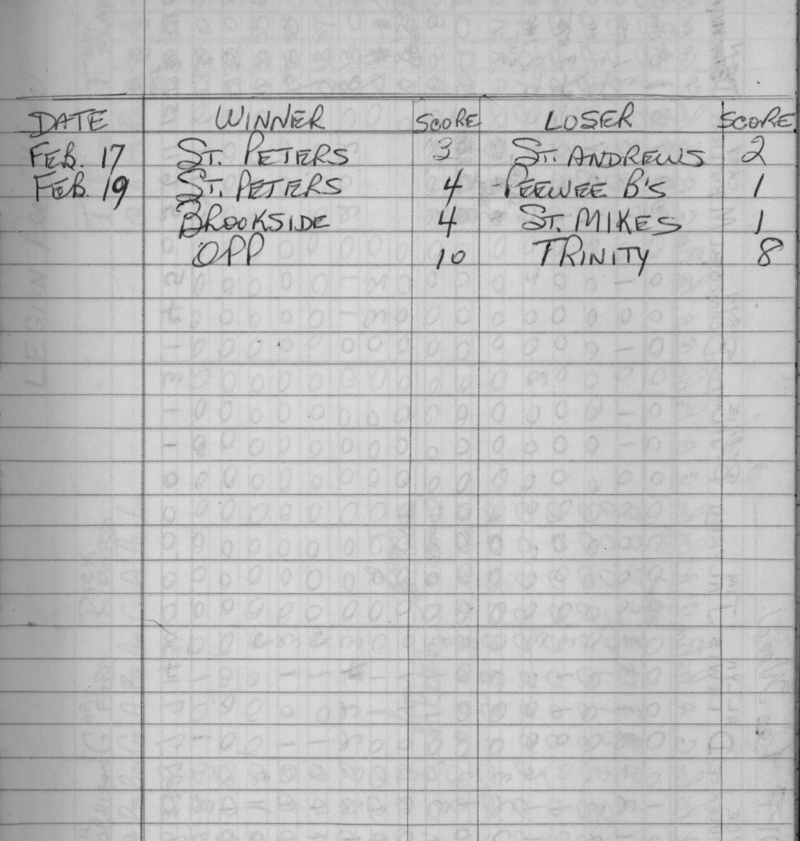 DATE WINNER SCORE LOSER SCORE
FEB. 17 ST. PETERS 3 ST. ANDREWS 2
FEB. 19 ST. PETERS 4 PEEWEE B'S 1
BROOKSIDE 4 ST. MIKES 1
OPP 10 TRINITY 8